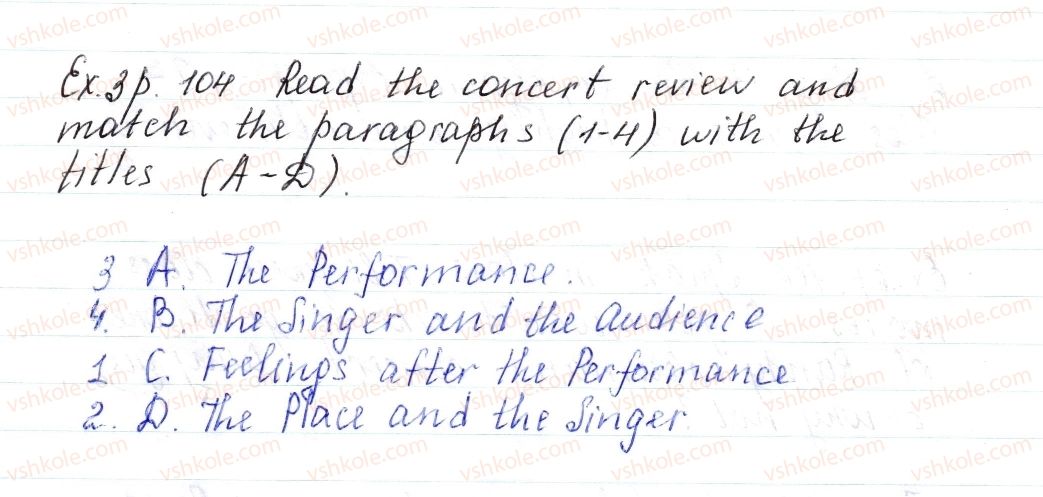 Ex. 3 p. 104 Read the concert review and
match the paragraphs (1-4) with the
titles (A-D).
3 A. The Performance.
4. B. The Singer and the Audience
1 C. Feelings after the Performance
2. D. The Place and the Singer.
vshkole.com